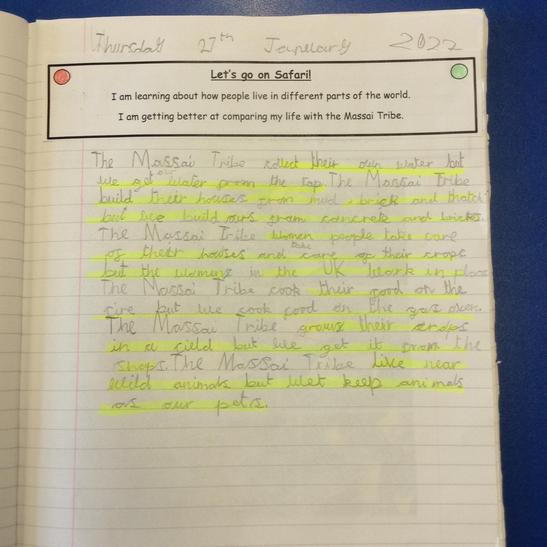 Thursday 27th January 2022
Let's go on Safari!
I am learning about how people live in different parts of the world.
I am getting better at comparing my life with the Massai Tribe.
The Massai Tribe collect their own water but
we get our water from the tap. The Massai Tribe
build their houses from mud, brick and thatch
but we build ours from concrete and bricks.
The Massai Tribe women people take care
of their houses and take care of their crops
but the womens in the UK work in place
The Massai Tribe cook their food on the
fire but we cook food on the gas oven.
The Massai Tribe grows their crops
in a field but we get it from the
shops. The Massai Tribe live near
wild animals but wet keep animals
as our pets.